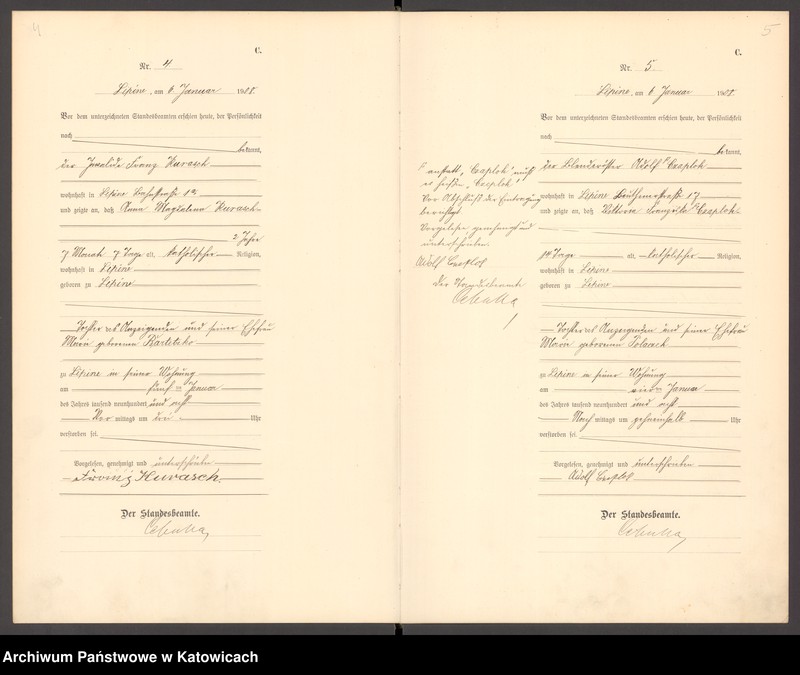 4
C.
Nr. 4
Lipine, am 6 Januar 1908.
Vor dem unterzeichneten Standesbeamten erschien heute, der Persönlichkeit
nach
bekannt,
der Invalide Franz Kurasch
wohnhaft in Lipine
und zeigte an, daß Anna Magdalena Kurasch
2 Jahre
7 Monat 7 Tage alt, katholischer Religion,
wohnhaft in Lipine
geboren zu Lipine
Tochter des Anzeigenden und seiner Ehefrau
Marie geborenen
zu Lipine in seiner Wohnung
am fünf ten Januar
des Jahres tausend neunhundert und acht
Vor mittags um drei Uhr
verstorben sei.
Vorgelesen, genehmigt und unterschrieben
Franz Kurasch
Der Standesbeamte.
Cebulla
5
C.
Nr. 5.
Lipine, am 6 Januar 1908.
Vor dem unterzeichneten Standesbeamten erschien heute, der Persönlichkeit
nach
bekannt,
der Blenderöster Adolf Czaplok
wohnhaft in Lipine 17
und zeigte an, daß Viktoria Czaplok
14 Tage alt, katholischer Religion,
wohnhaft in Lipine
geboren zu Lipine
Tochter des Anzeigenden und seiner Ehefrau
Marie geborenen Polaczek
zu Lipine in seiner Wohnung
am vier ten Januar
des Jahres tausend neunhundert und acht
Nach mittags um zehneinhalb Uhr
verstorben sei.
Vorgelesen, genehmigt und unterschrieben
Adolf Czeplok
Der Standesbeamte.
Cebulla
anstatt „Czaplok" muß
es heißen „Czeplok".
Vor Abschluß der Eintragung
berichtigt.
Vorgelesen, genehmigt und
unterschrieben.
Adolf Czeplok
Der Standesbeamte
Cebulla
Archiwum Państwowe w Katowicach